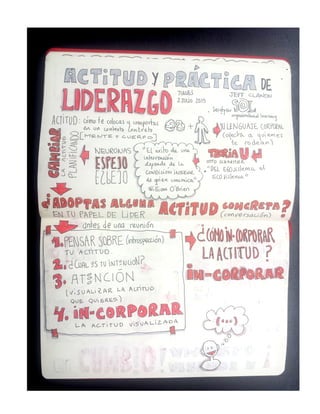 ACTITUD Y PRÁCTICA DE
LIDERAZGO
JUEVES
2 JULIO 2015
JEFF CLANON
organizational learning
ACTITUD: cómo te colocas y comportas
en un contexto concreto
(MENTE Y CUERPO)
LENGUAJE CORPORAL
(afecta a quienes
te rodean)
CAMBIAR
LA ACTITUD
PLANIFICADO
NEURONAS
ESPEJO
ESPEJO
"El éxito de una
intervención
depende de la
condición interior
de quien
William O'Brien
TEORÍA U
OTTO SCHARMER
"DEL EGOSISTEMA AL
ECOSISTEMA"
¿ADOPTAS ALGUNA ACTITUD CONCRETA?
EN TU PAPEL DE LÍDER
(conversación)
antes de una reunión
1. PENSAR SOBRE (introspección)
TU ACTITUD
2. ¿CUÁL ES TU INTENCIÓN?
3. ATENCIÓN
(VISUALIZAR LA ACTITUD
QUE QUIERES)
4. IN-CORPORAR
LA ACTITUD VISUALIZADA
¿CÓMO IN-CORPORAR
LA ACTITUD?
IN-CORPORAR
(...)
CAMBIO!